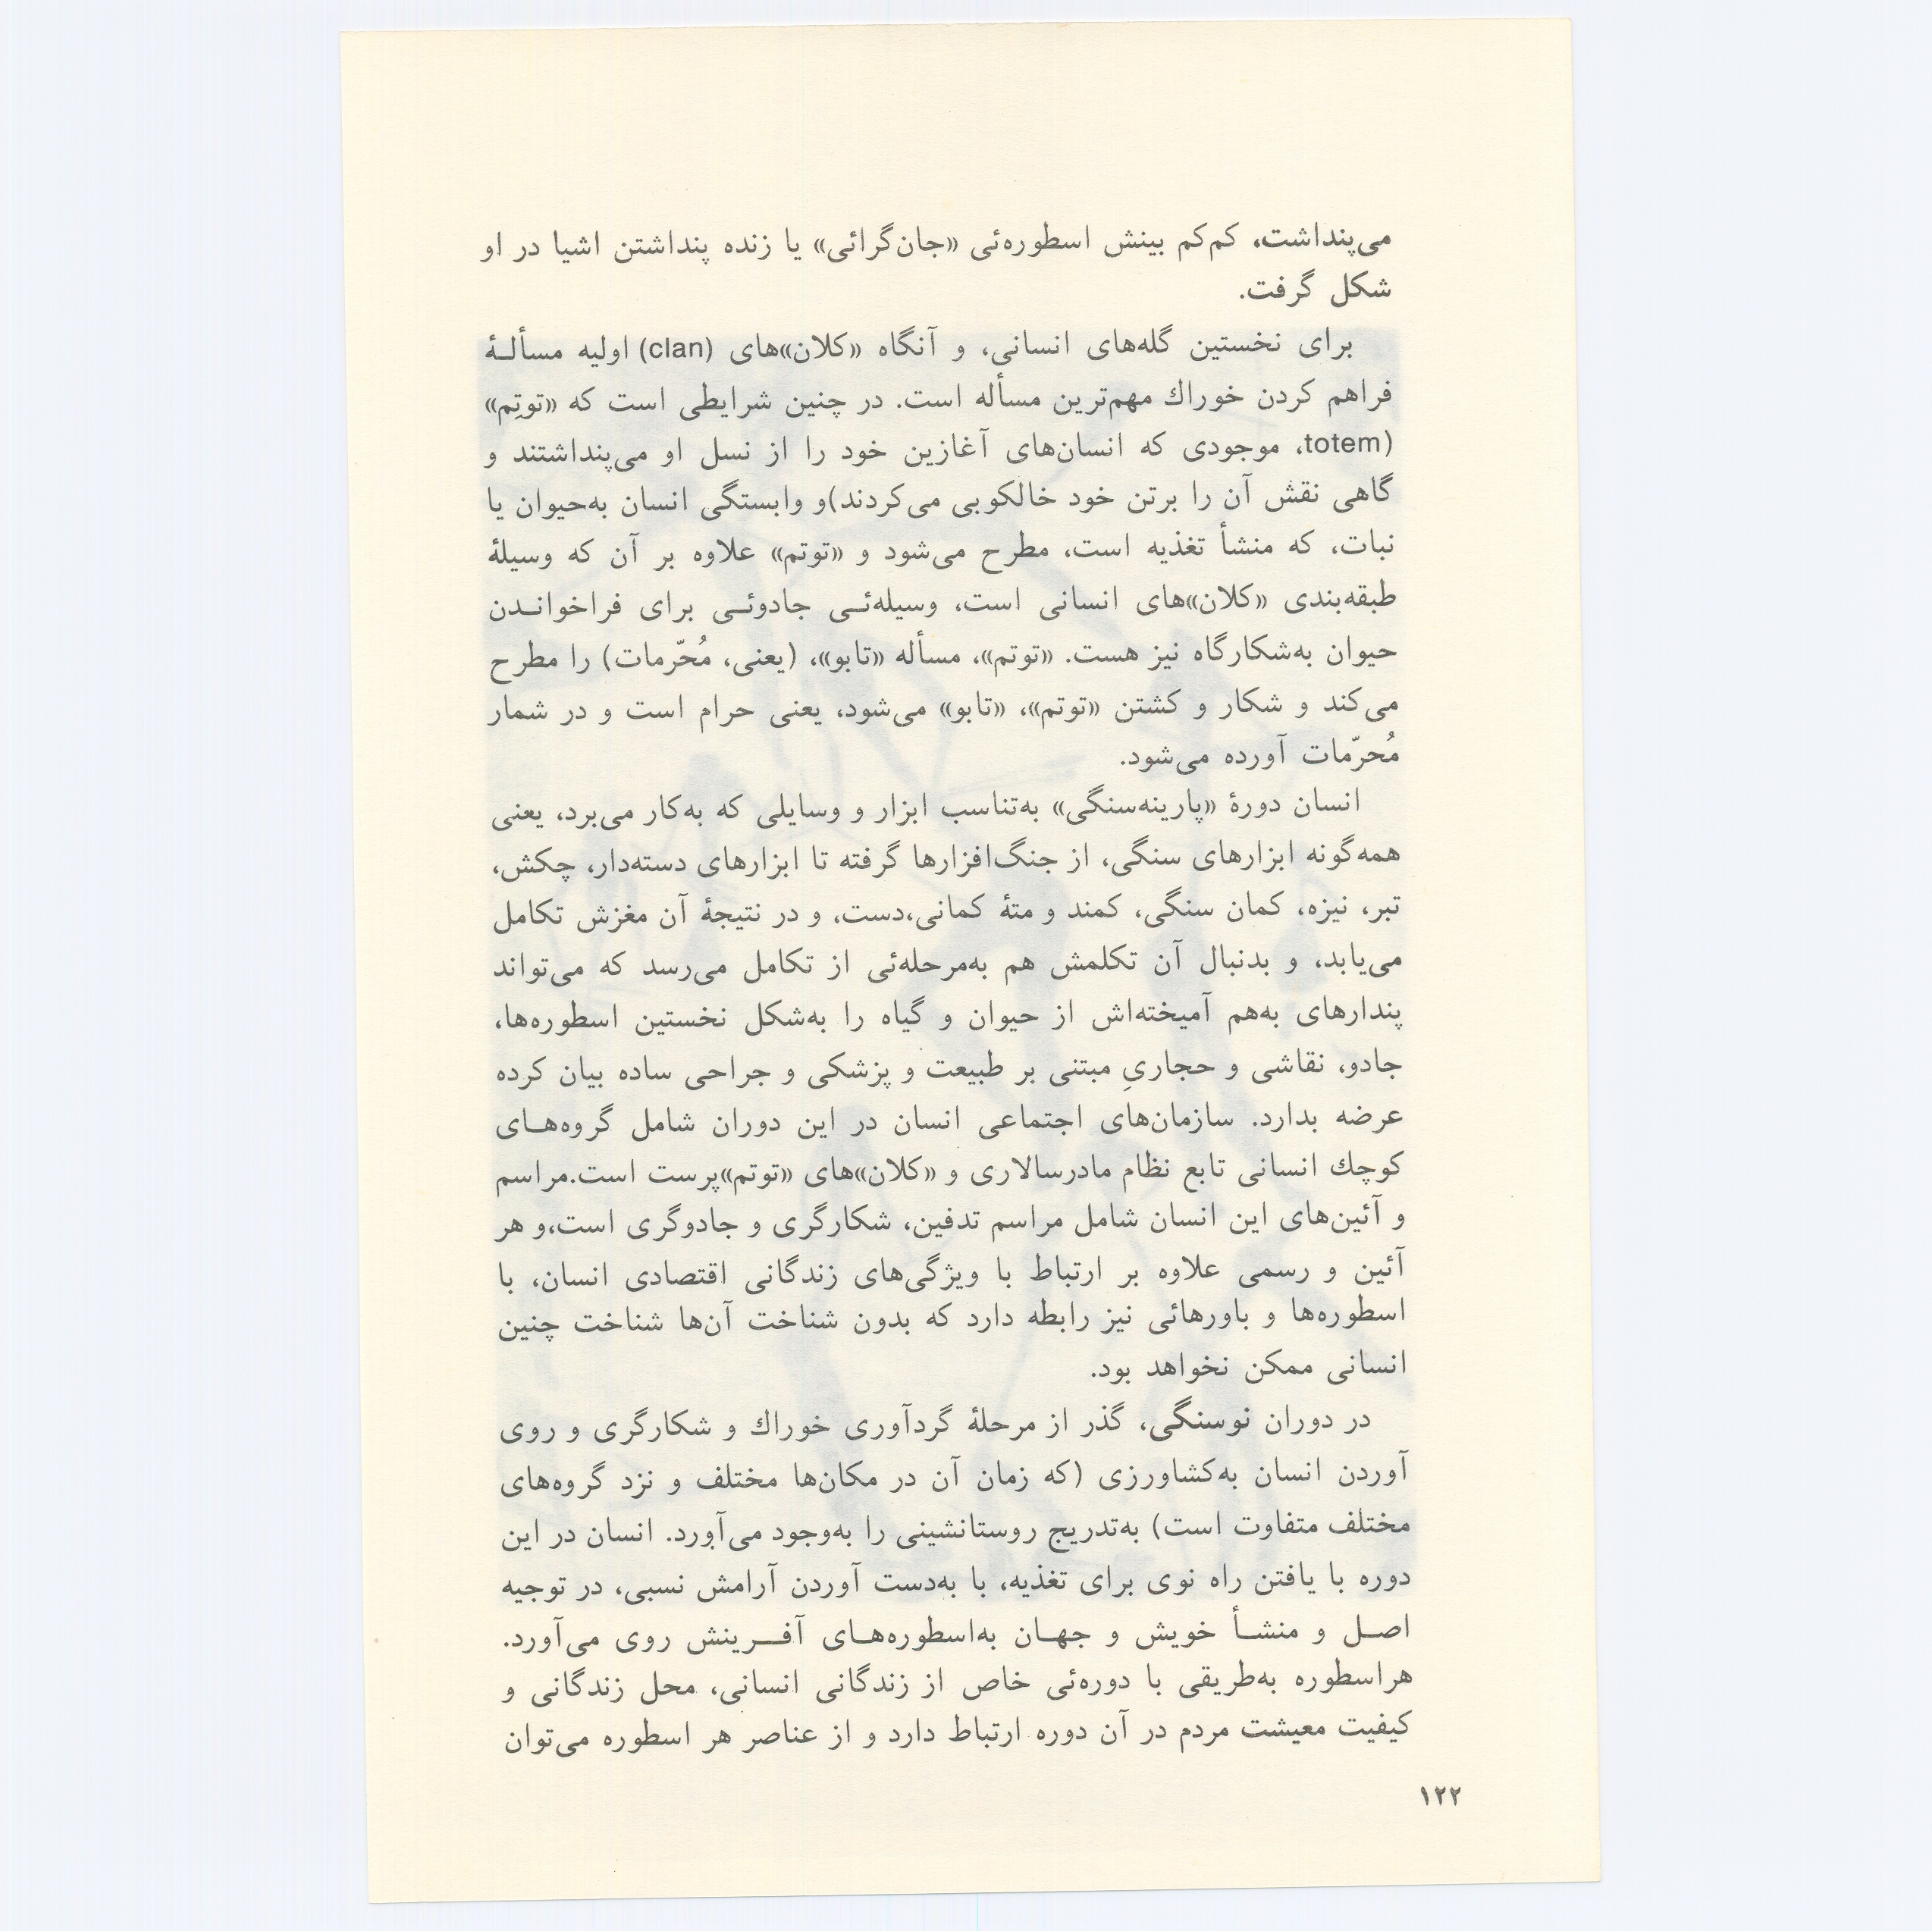 می‌پنداشت، کم‌کم بینش اسطوره‌ئی «جان‌گرائی» یا زنده پنداشتن اشیا در او
شکل گرفت.
برای نخستین گله‌های انسانی، و آنگاه «کلان»های (clan) اولیه مسألـهٔ
فراهم کردن خوراك مهم‌ترین مسأله است. در چنین شرایطی است که «توتِم»
(totem، موجودی که انسان‌های آغازین خود را از نسل او می‌پنداشتند و
گاهی نقش آن را برتن خود خالکوبی می‌کردند)و وابستگی انسان به‌حیوان یا
نبات، که منشأ تغذیه است، مطرح می‌شود و «توتم» علاوه بر آن که وسیلهٔ
طبقه‌بندی «کلان»های انسانی است، وسیله‌ئـی جادوئـی برای فراخوانـدن
حیوان به‌شکارگاه نیز هست. «توتم»، مسأله «تابو»، (یعنی، مُحرّمات) را مطرح
می‌کند و شکار و کشتن «توتم»، «تابو» می‌شود، یعنی حرام است و در شمار
مُحرّمات آورده می‌شود.
انسان دورهٔ «پارینه‌سنگی» به‌تناسب ابزار و وسایلی که به‌کار می‌برد، یعنی
همه‌گونه ابزارهای سنگی، از جنگ‌افزارها گرفته تا ابزارهای دسته‌دار، چکش،
تبر، نیزه، کمان سنگی، کمند و متهٔ کمانی،دست، و در نتیجهٔ آن مغزش تکامل
می‌یابد، و بدنبال آن تکلمش هم به‌مرحله‌ئی از تکامل می‌رسد که می‌تواند
پندارهای به‌هم آمیخته‌اش از حیوان و گیاه را به‌شکل نخستین اسطوره‌ها،
جادو، نقاشی و حجاریِ مبتنی بر طبیعت و پزشکی و جراحی ساده بیان کرده
عرضه بدارد. سازمان‌های اجتماعی انسان در این دوران شامل گروه‌هـای
کوچك انسانی تابع نظام مادرسالاری و «کلان»های «توتم»پرست است.مراسم
و آئین‌های این انسان شامل مراسم تدفین، شکارگری و جادوگری است،و هر
آئین و رسمی علاوه بر ارتباط با ویژگی‌های زندگانی اقتصادی انسان، با
اسطوره‌ها و باورهائی نیز رابطه دارد که بدون شناخت آن‌ها شناخت چنین
انسانی ممکن نخواهد بود.
در دوران نوسنگی، گذر از مرحلهٔ گردآوری خوراك و شکارگری و روی
آوردن انسان به‌کشاورزی (که زمان آن در مکان‌ها مختلف و نزد گروه‌های
مختلف متفاوت است) به‌تدریج روستانشینی را به‌وجود می‌آورد. انسان در این
دوره با یافتن راه نوی برای تغذیه، با به‌دست آوردن آرامش نسبی، در توجیه
اصـل و منشـأ خویش و جهـان به‌اسطوره‌هـای آفـرینش روی می‌آورد.
هراسطوره به‌طریقی با دوره‌ئی خاص از زندگانی انسانی، محل زندگانی و
کیفیت معیشت مردم در آن دوره ارتباط دارد و از عناصر هر اسطوره می‌توان
۱۲۲